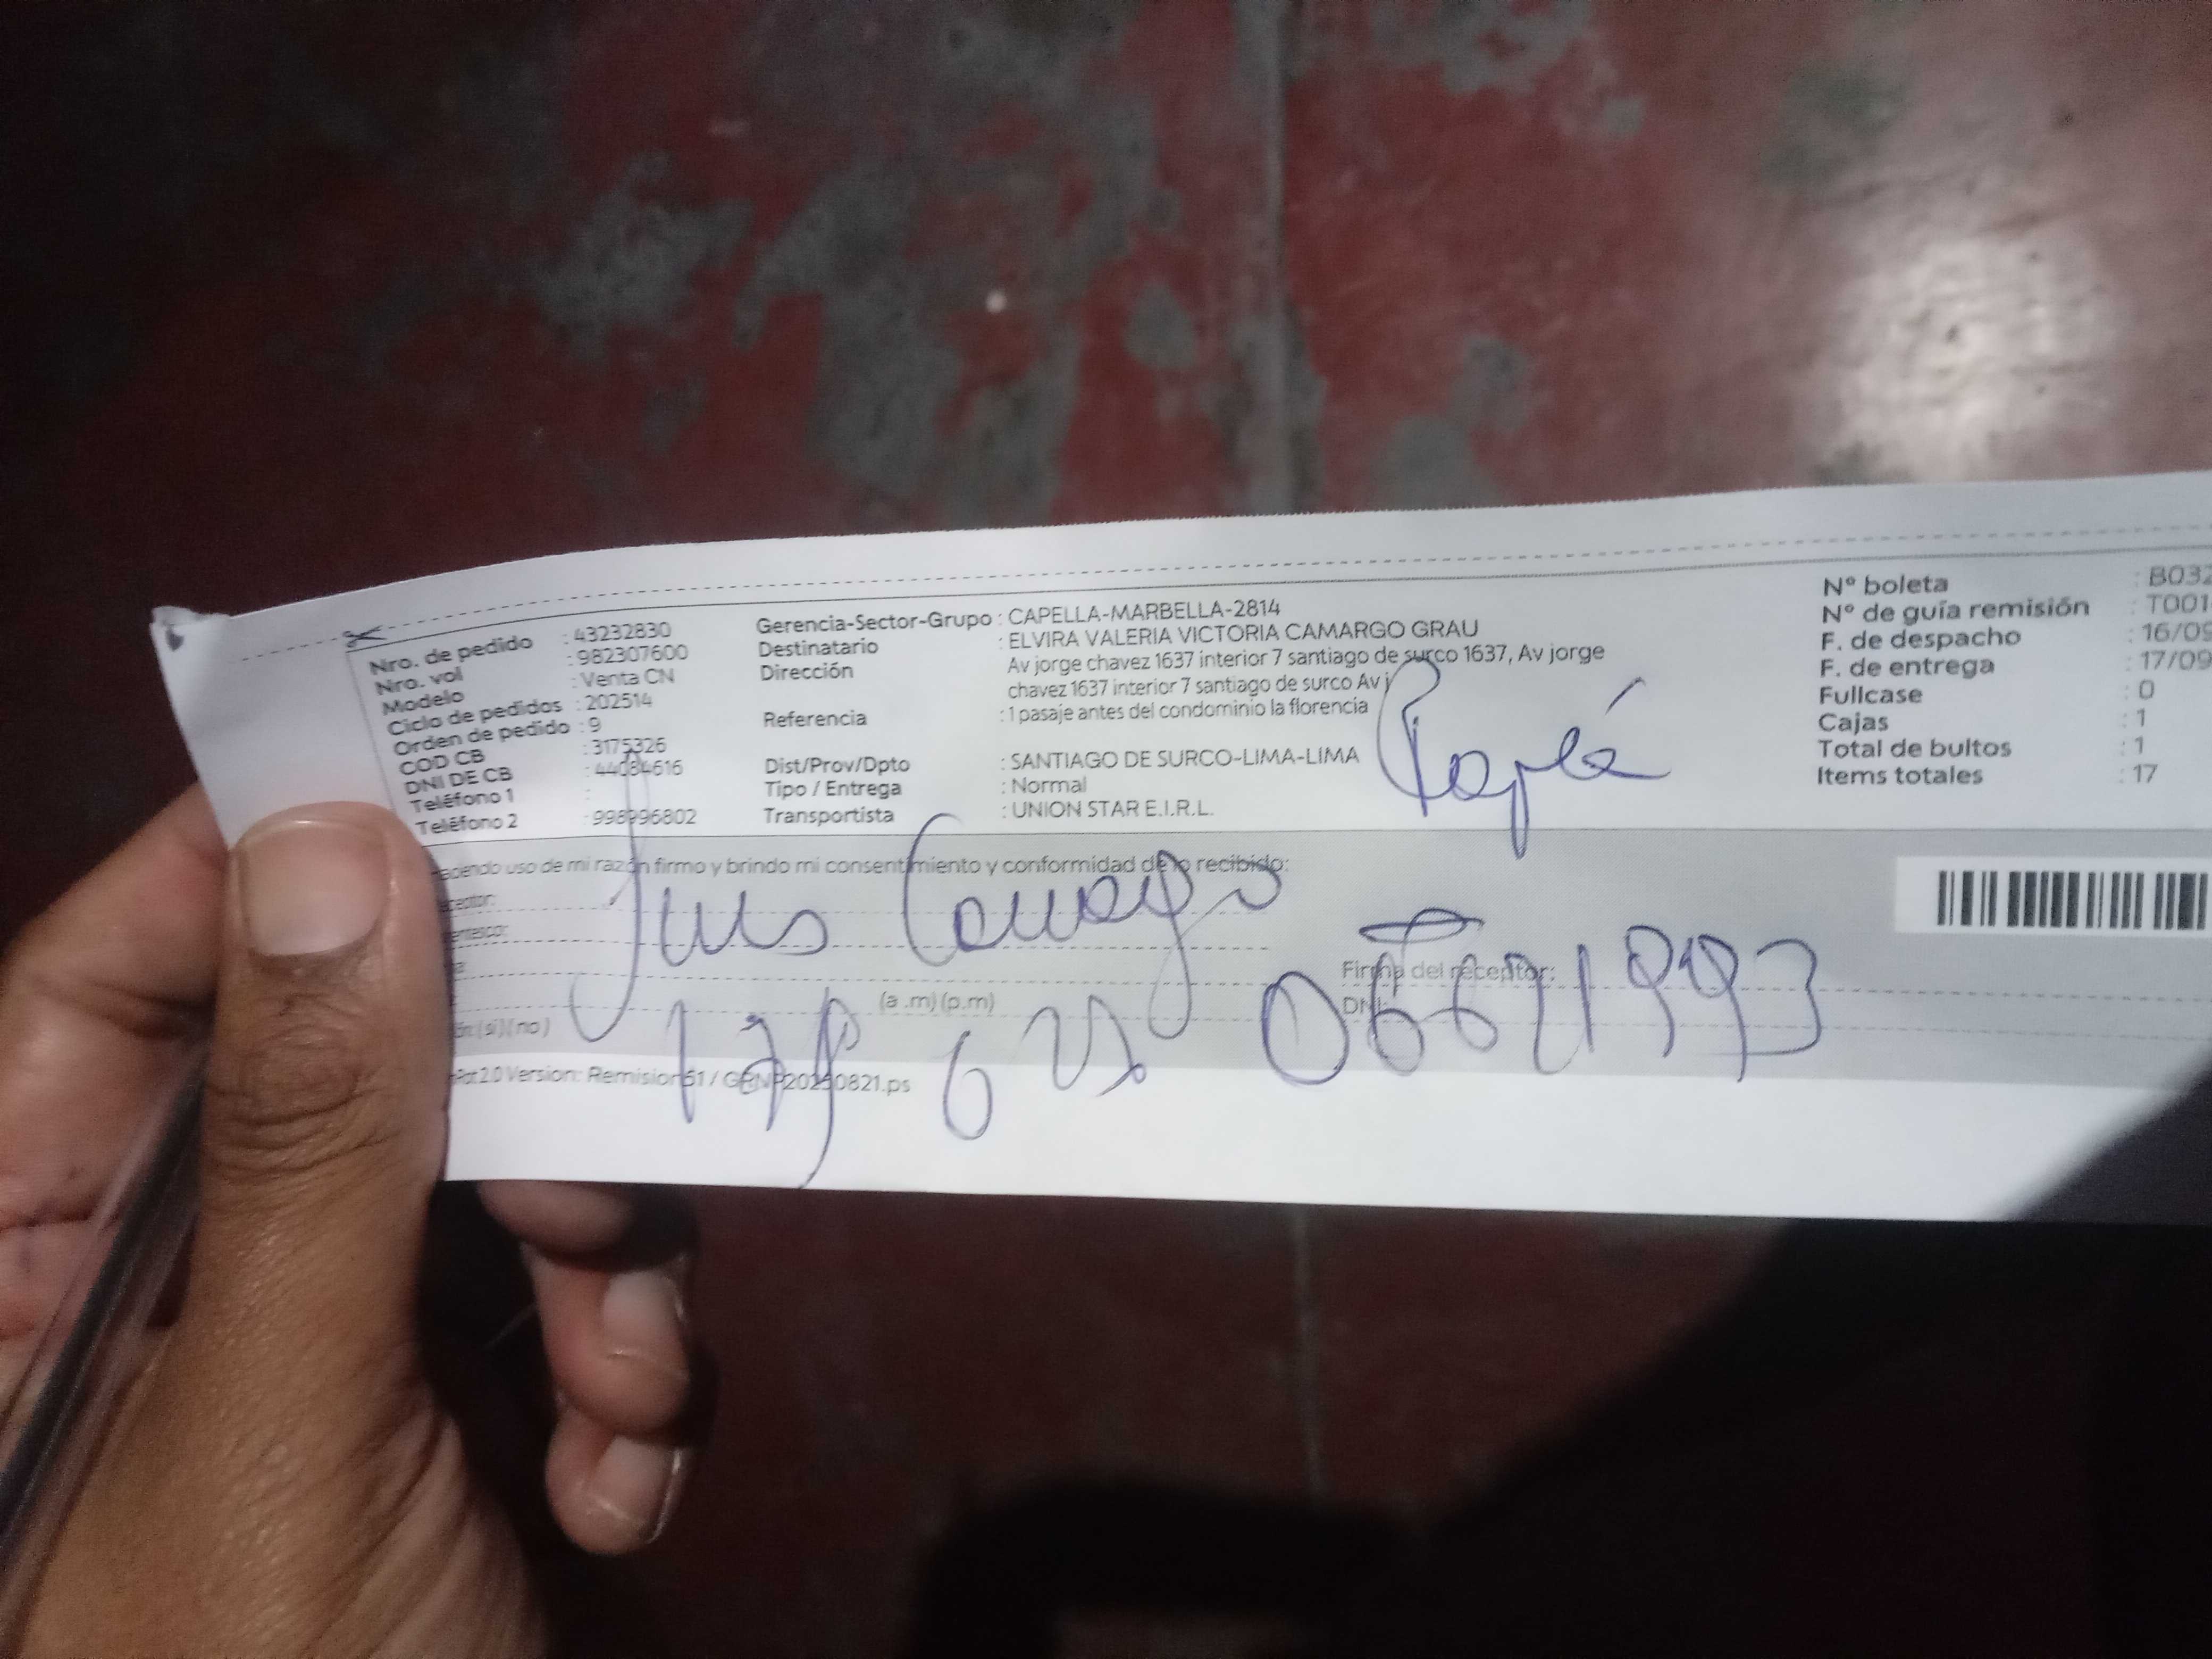 Nro. de pedido : 43232830
Nro. vol : 982307600
Modelo : Venta CN
Ciclo de pedidos : 202514
Orden de pedido : 9
COD CB : 3175326
DNI DE CB : 44084616
Teléfono 1 :
Teléfono 2 : 998996802
Gerencia-Sector-Grupo : CAPELLA-MARBELLA-2814
Destinatario : ELVIRA VALERIA VICTORIA CAMARGO GRAU
Dirección : Av jorge chavez 1637 interior 7 santiago de surco 1637, Av jorge
chavez 1637 interior 7 santiago de surco Av j
Referencia : 1 pasaje antes del condominio la florencia
Dist/Prov/Dpto : SANTIAGO DE SURCO-LIMA-LIMA
Tipo / Entrega : Normal
Transportista : UNION STAR E.I.R.L.
Nº boleta : B032
Nº de guía remisión : T001-
F. de despacho : 16/09
F. de entrega : 17/09
Fullcase : 0
Cajas : 1
Total de bultos : 1
Items totales : 17
Papá
aciendo uso de mi razón firmo y brindo mi consentimiento y conformidad de lo recibido:
ceptor:
entesco:
Luis Camargo
(a .m) (p.m)
(si) (no)
Firma del receptor:
DNI:
2.0 Version: Remision51 / GRNP20250821.ps